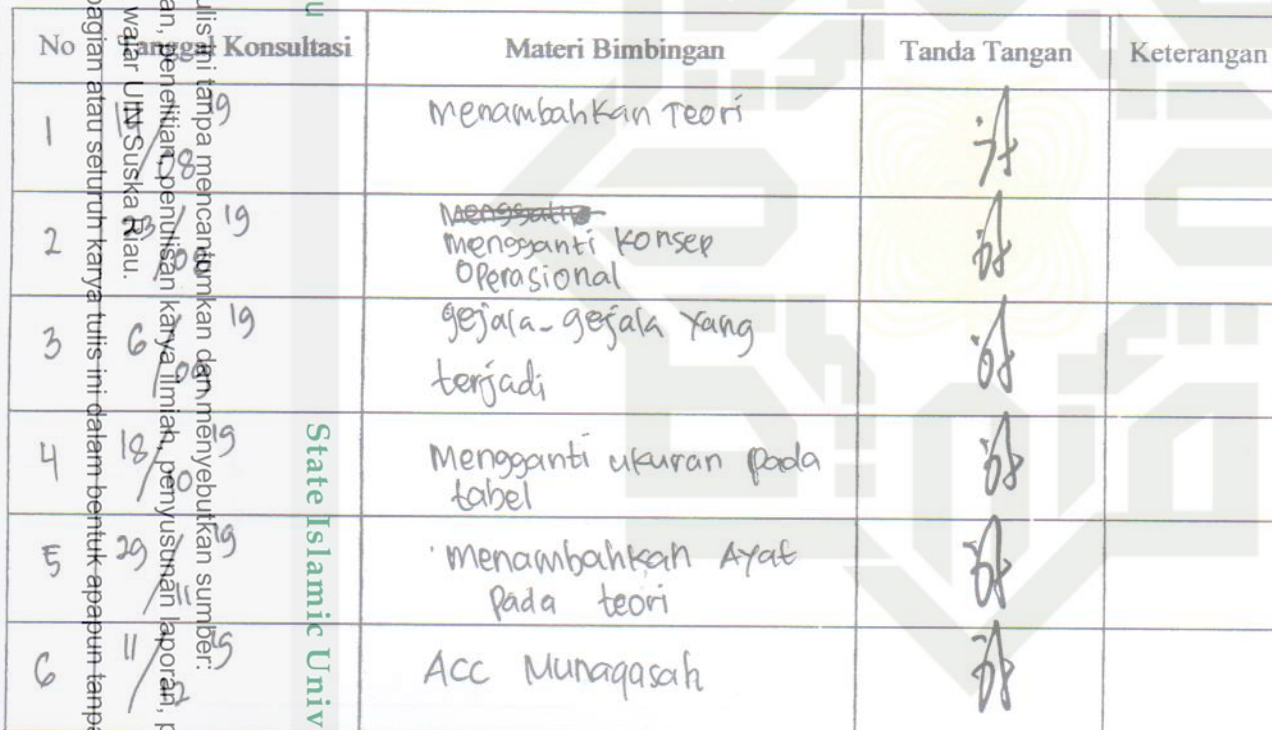 No Tanggal Konsultasi Materi Bimbingan Tanda Tangan Keterangan
1 19 Menambahkan Teori
2 19 mengganti konsep
Operasional
3 6 19 gejala-gejala yang
terjadi
4 18/10 19 Mengganti ukuran pada
tabel
5 29/11 19 menambahkan Ayat
pada teori
6 11/12 19 ACC Munaqasah
u
State Islamic Univ
ulis ini tanpa mencantumkan dan menyebutkan sumber:
an, penelitian, penulisan karya ilmiah, penyusunan laporan, p
wajar UIN Suska Riau.
bagian atau seluruh karya tulis ini dalam bentuk apapun tanpa